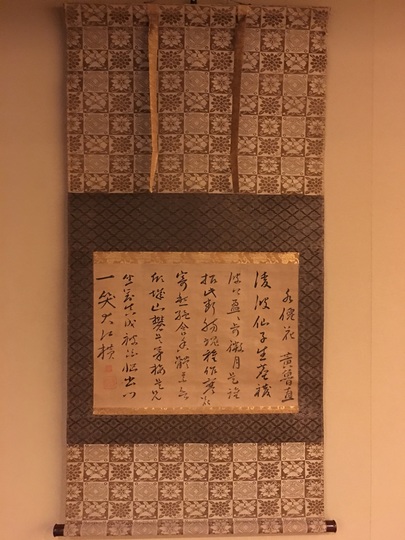 水僊花 黄魯直
凌波仙子生塵襪
水上盈盈步微月是誰
招此斷腸魂種作寒花
寄愁絶含香體素
欲傾城山礬是弟梅是兄
坐對真成被花惱出門
一笑大江橫